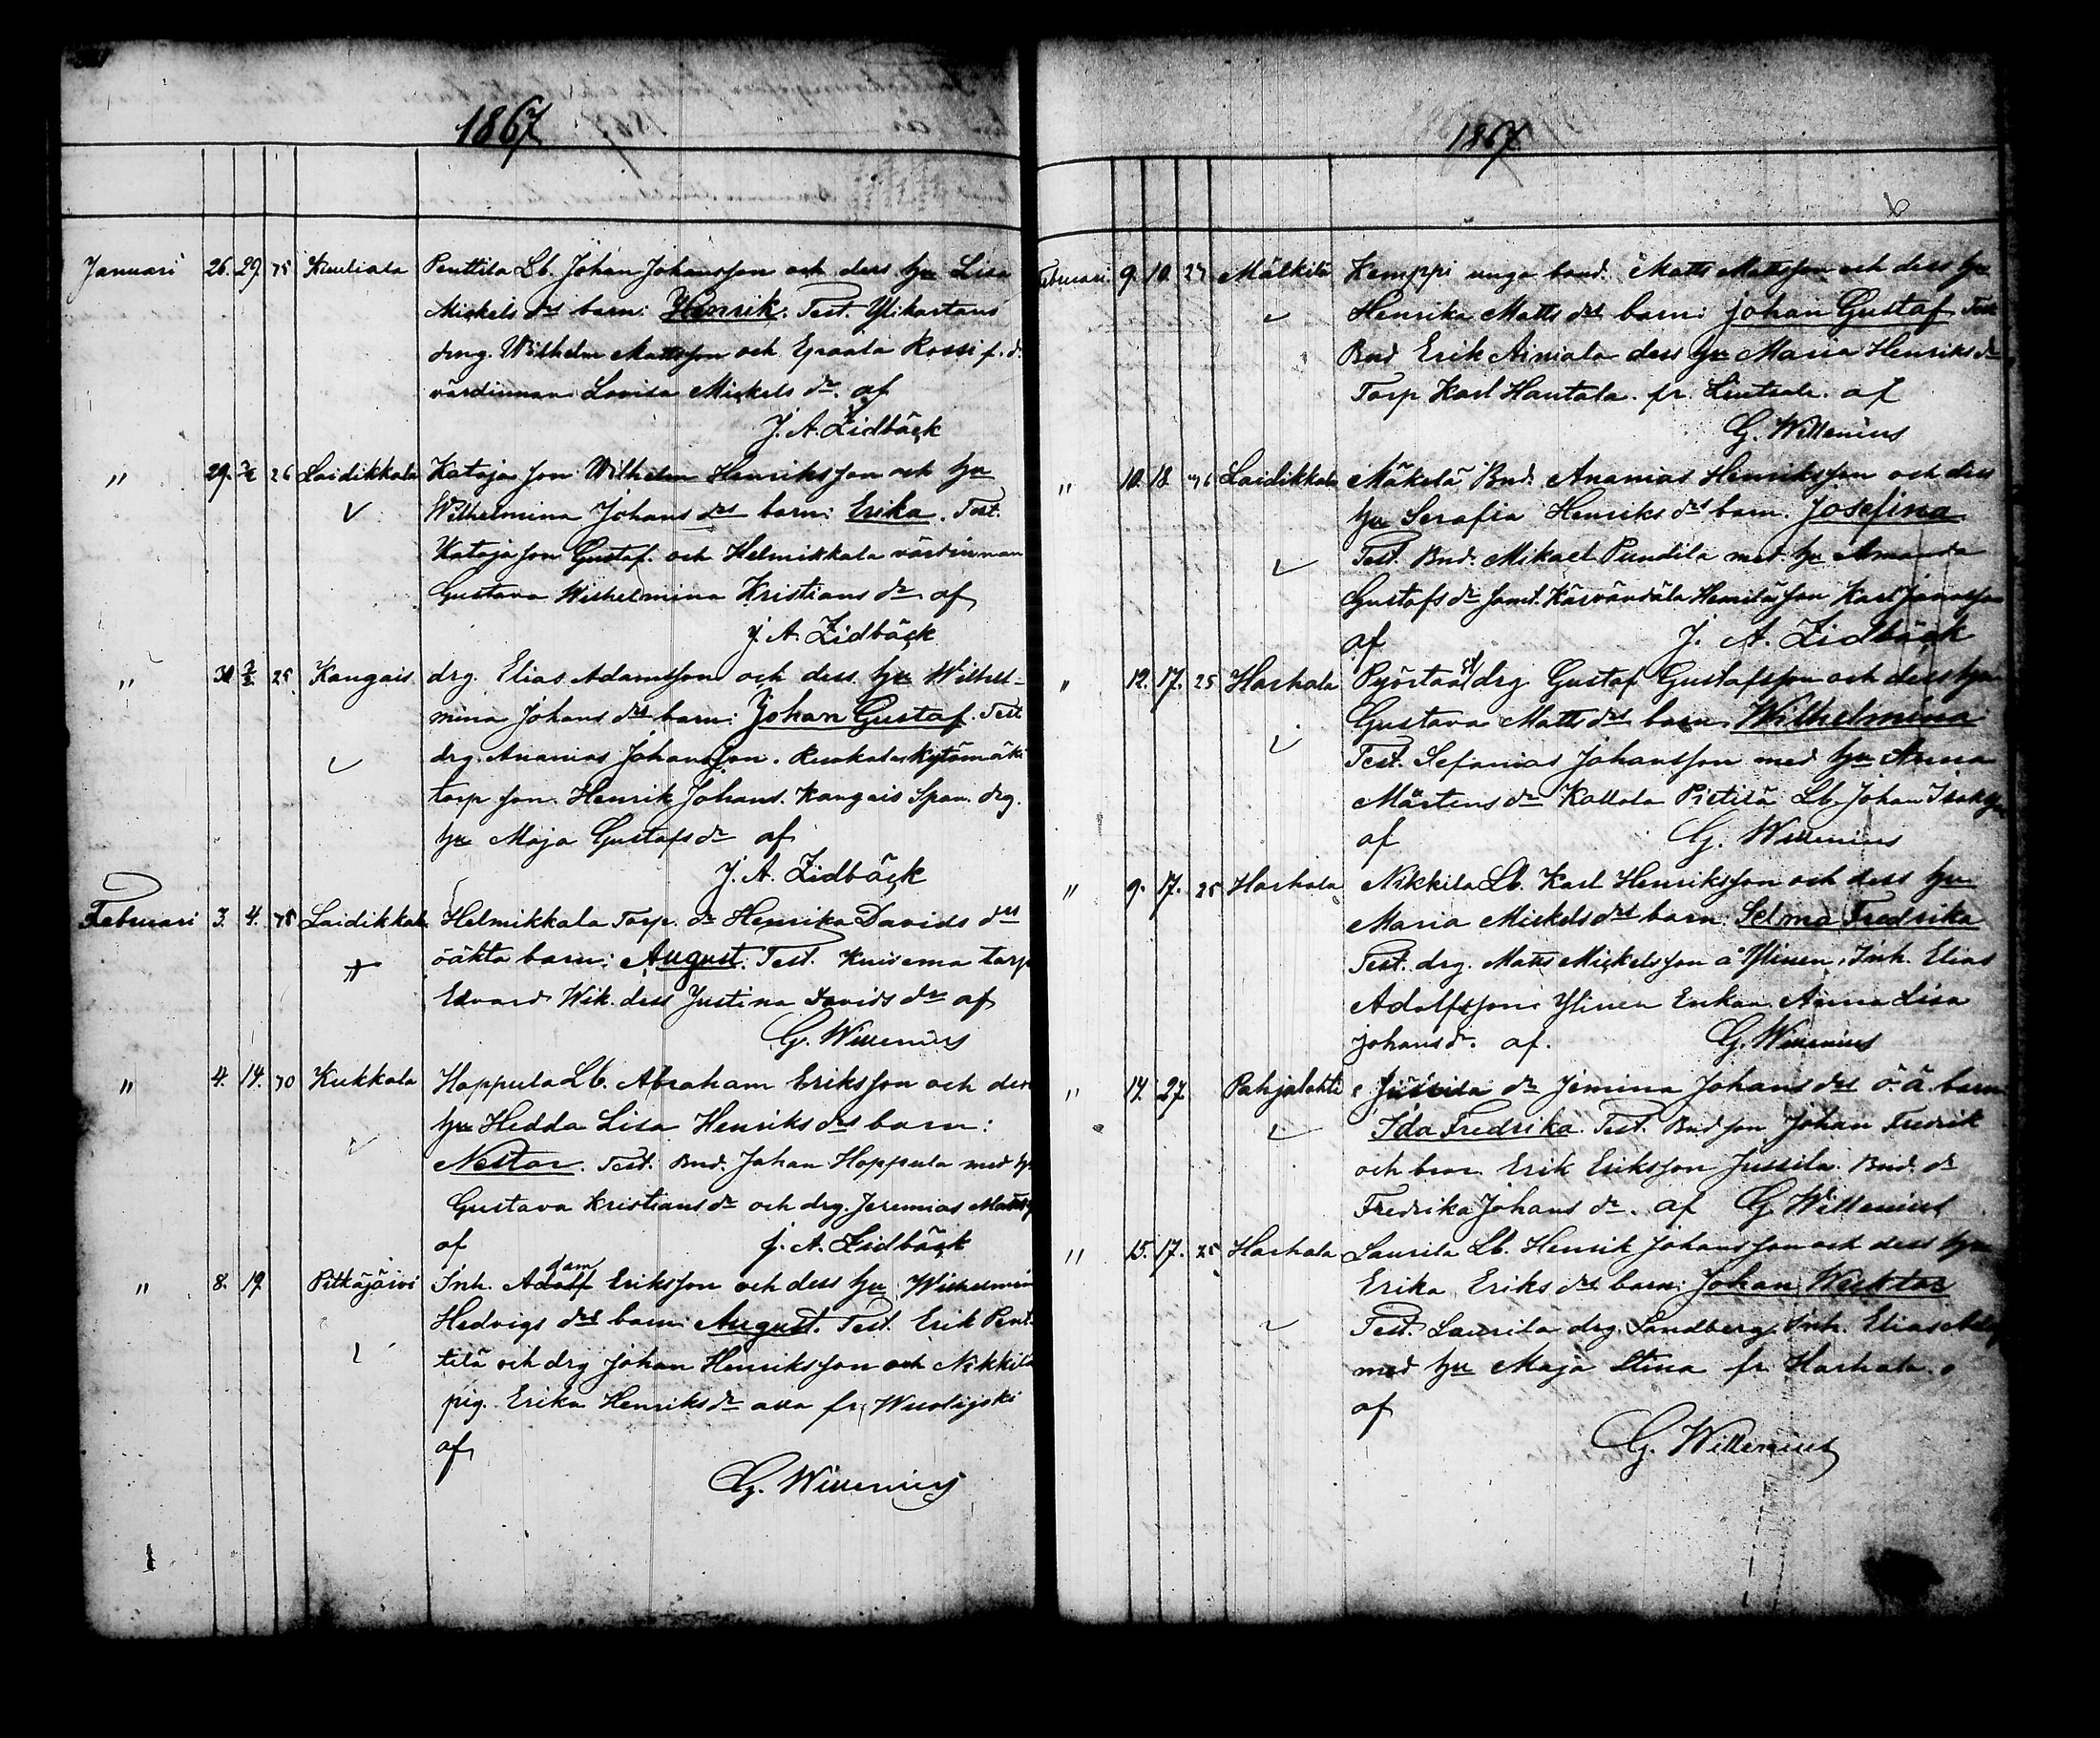 1867
Januari 26. 29. 75 Kuuliala Penttila Lb. Johan Johansson och dess hu Lisa
Mickels drs barn: Henrik. Test. Ylikartano
drng. Wilhelm Mattsson och Eerola Rossi f. d.
värdinnan Lovisa Mickels dr. af
J. A. Lidbäck
" 29. 3/2 26 Laidikkala Katoja son Wilhelm Henriksson och hu
Wilhelmina Johans drs barn: Erika. Test.
Katoja son Gustaf. och Helmikkala värdinnan
Gustava Wilhelmina Kristians dr af
J. A. Lidbäck
" 30 3/2 25 Kangais drg. Elias Adamsson och dess hu Wilhel-
mina Johans drs barn: Johan Gustaf. Test
drg. Ananias Johansson. Kytömäki
torp son. Henrik Johans. Kangais Span. drg.
hu Maja Gustafs dr af
J. A. Lidbäck
Februari 3. 4. 75 Laidikkala Helmikkala Torp. dr Henrika Davids drs
oäkta barn: August. Test. Kuisema torp
Edvard Wik. dess Justina Davids dr af
G. Willenius
" 4. 14. 30 Kukkola Hoppula Lb. Abraham Eriksson och dess
hu Hedda Lisa Henriks drs barn:
Nestor. Test. Bnd. Johan Hoppula med hu
Gustava Kristians dr och drg. Jeremias Matts
af J. A. Lidbäck
" 8. 19. Pitkäjärvi Inh. Adolf dam Eriksson och dess hu Wilhelmin
Hedvigs drs barn: August. Test. Erik Pent-
tilä och drg Johan Henriksson och Nikkilä
pig. Erika Henriks dr alla fr. Wuolijoki
af
G. Willenius
1867
6
Februari. 9. 10. 27 Mälkilä Kemppi unga bond. Matts Mattsson och dess hu
Henrika Matts drs barn: Johan Gustaf. Test
Bnd Erik Ainiala dess hu Maria Henriks dr
Torp Karl Hantala. fr. af
G. Willenius
" 10. 18 Laidikkala Mäkelä Bnd. Ananias Henriksson och dess
hu Serafia Henriks drs barn. Josefina
Test. Bnd. Mikael Pundila med hu Amanda
Gustafs dr samt. Henrik son Karl
af J. A. Lidbäck
" 12. 17. 25 Harhala drg Gustaf Gustafsson och dess hu
Gustava Matts drs barn: Wilhelmina
Test. Sefanias Johansson med hu Anna
Mårtens dr Kallola Pietilä Lb. Johan
af G. Willenius
" 9. 17. 25 Harhala Nikkila Lb. Karl Henriksson och dess hu
Maria Mickels drs barn: Selma Fredrika
Test. drg. Matts Mickelsson å Ylinen. Inh. Elias
Adolfsson. Ylinen Enkan. Anna Lisa
Johans dr. af. G. Willenius
" 14. 27. Pohjalahti Jussila dr Jemina Johans drs o.ä. barn
Ida Fredrika. Test. Bnd son Johan Fredrik
och bror Erik Eriksson Jussila. Bnd. dr
Fredrika Johans dr. af G. Willenius
" 15. 17. 25 Harhala Laurila Lb. Henrik Johansson och dess hu
Erika Eriks drs barn: Johan Wichtor
Test. Laurila drg. Sandberg. Inh. Elias
med hu Maja Stina fr. Harhala.
af
G. Willenius